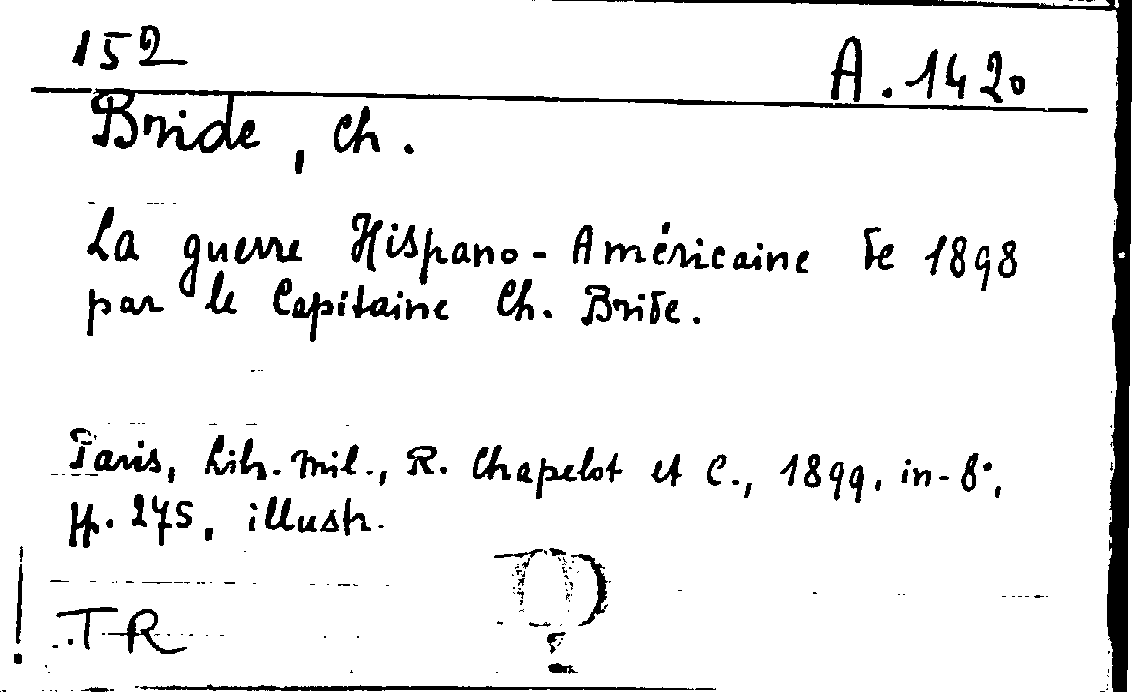 152
A. 1420
Bride, Ch.
La guerre Hispano-Américaine de 1898
par le Capitaine Ch. Bride.
Paris, Libr. Mil., R. Chapelot et C., 1899, in-8°,
pp. 275, illustr.
TR